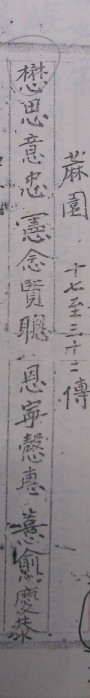 蔴園 十七至三十二傳
懋思意忠憲念賢聰恩寧慤惠慈愈慶恭